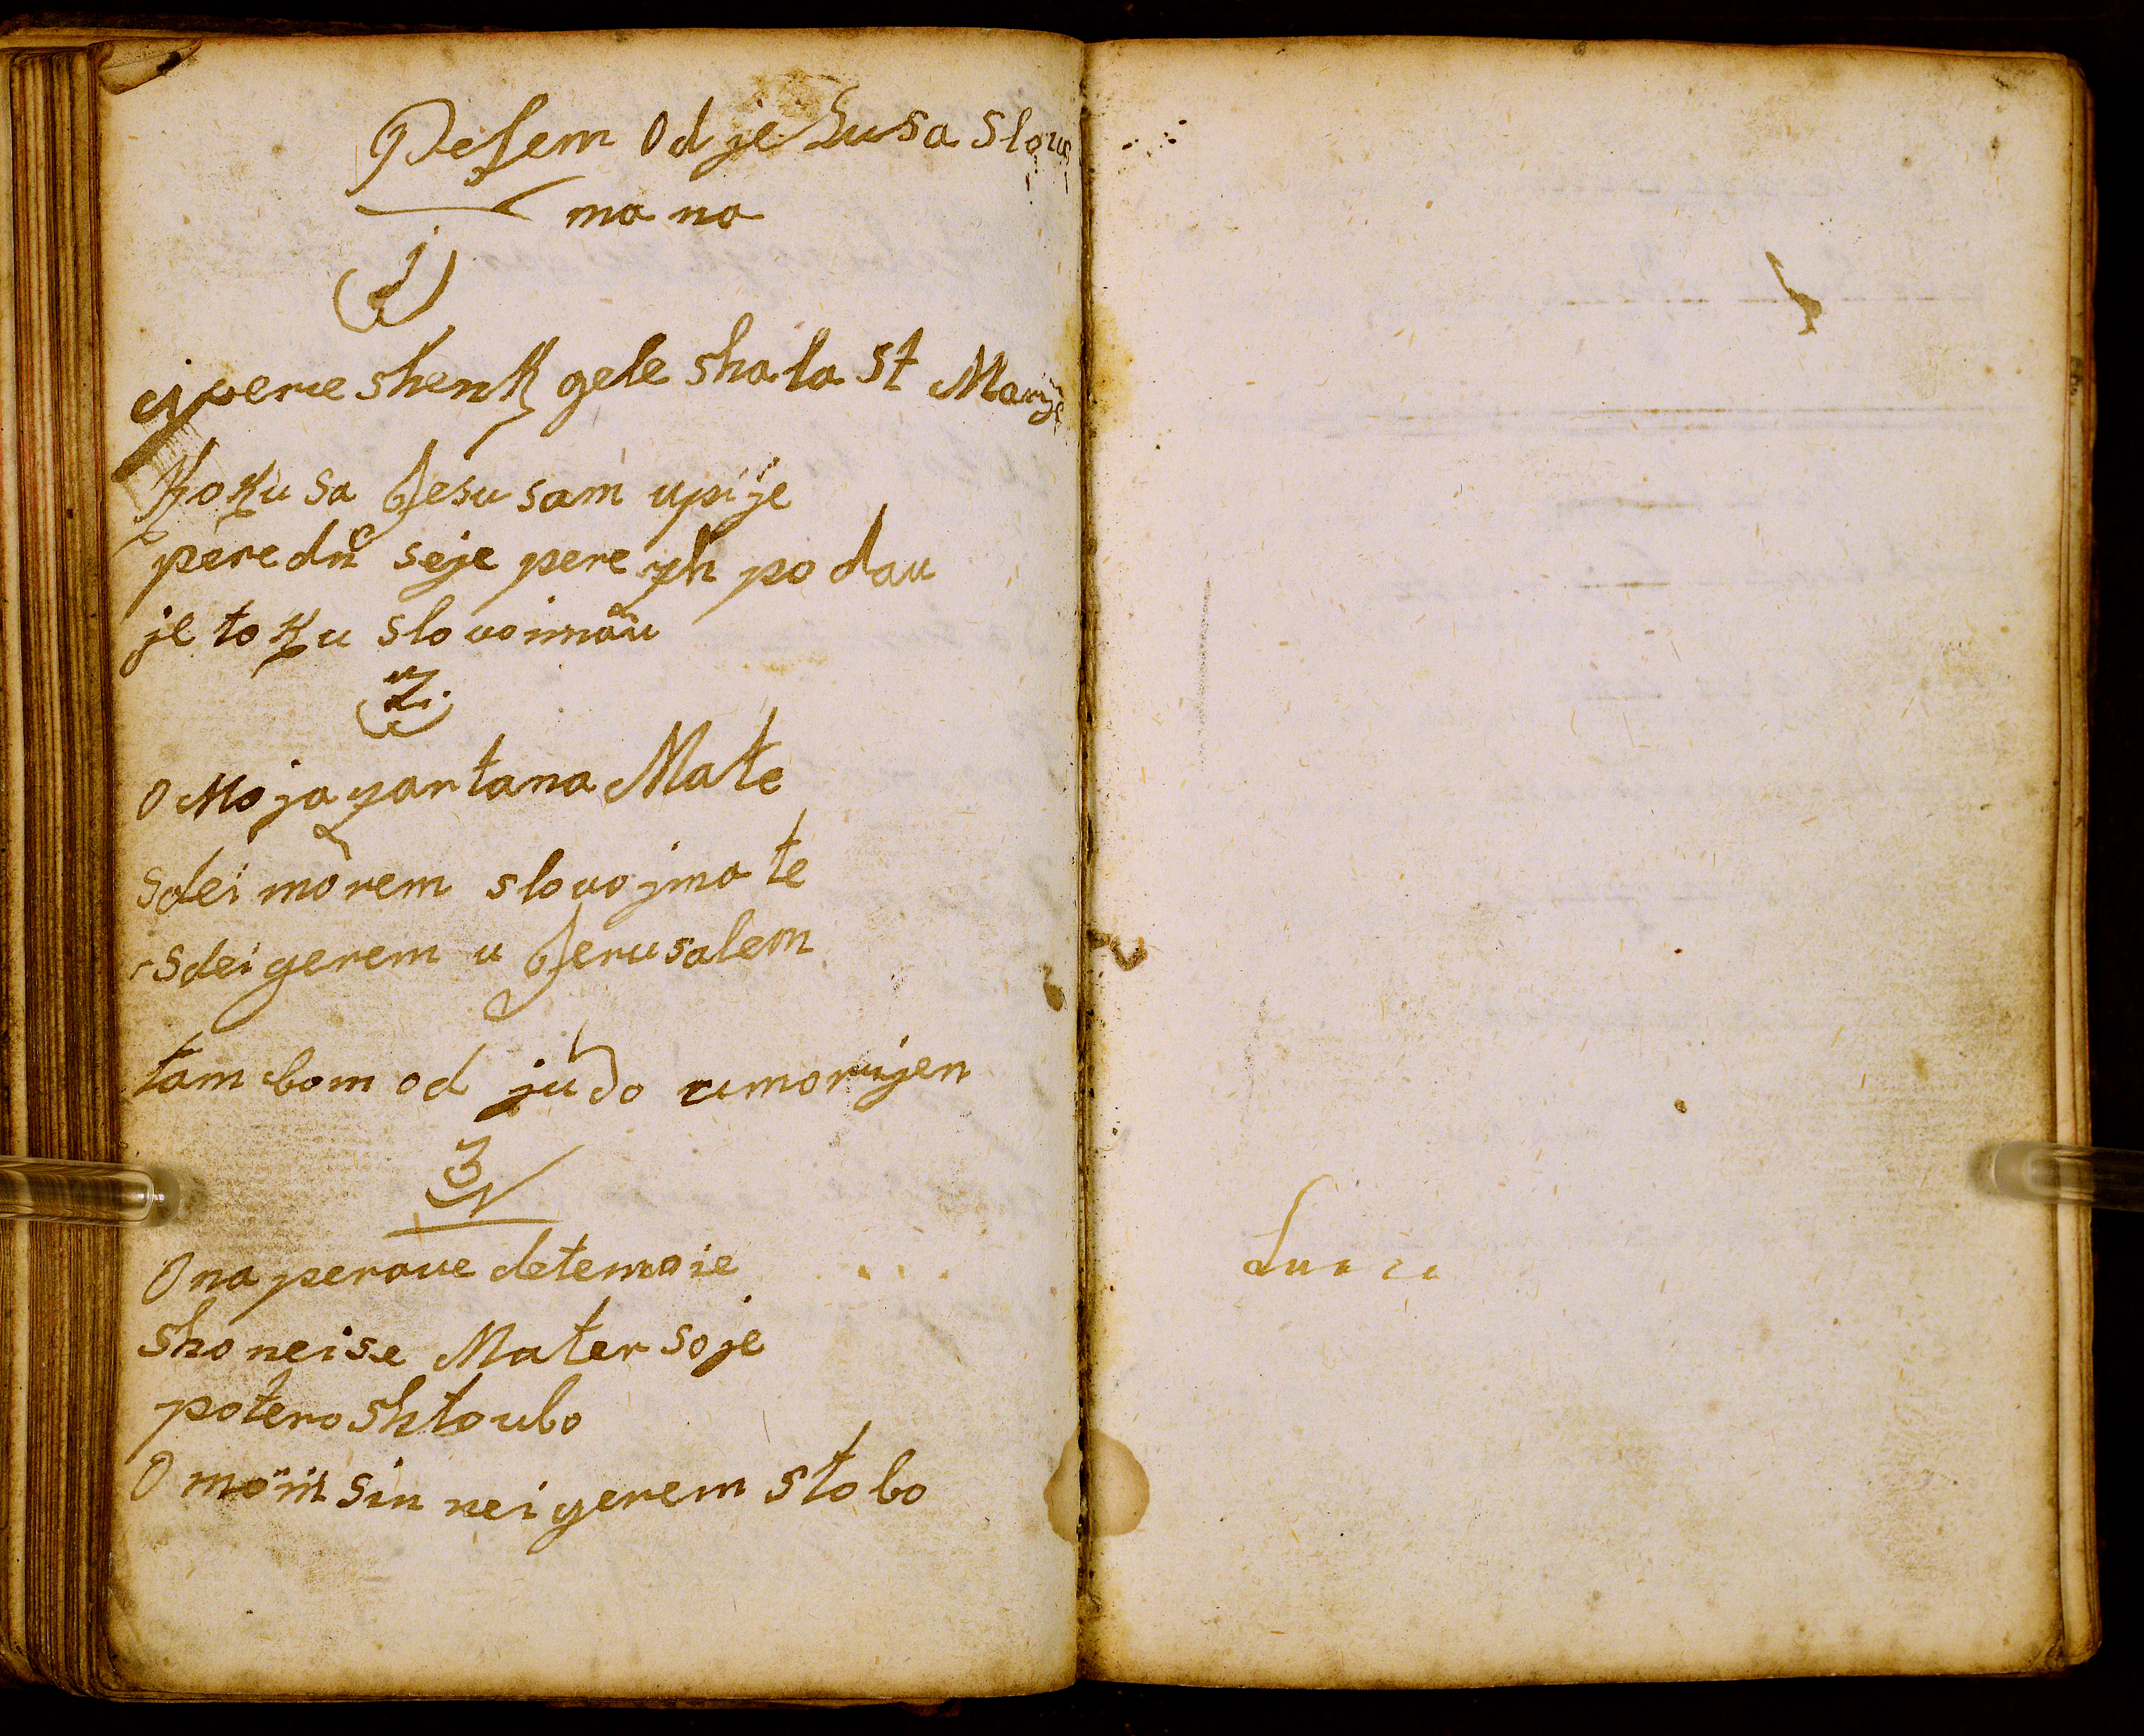 Pesem Od je Susa slovu
ma na
1
ej perve shenk gele sha la st Marje
Koku sa Jesusam upije
peredn seje pere yh po dau
je toku slovoimäu
2.
O Moja yartana Mate
sdei morem slovo jma te
sdei gerem u Jerusalem
tam bom od judo umorvijen
3
O na perave detemoie
sho neise Mater soje
potero shtoubo
O möin sin nei gerem stobo